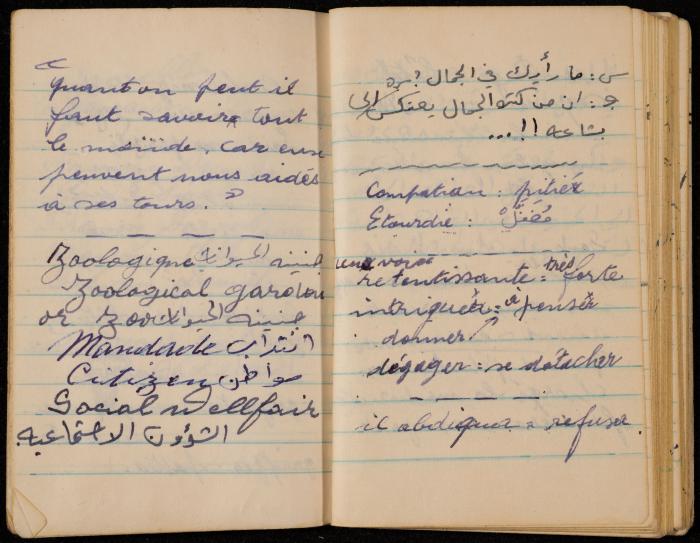 «
quant on peut il
faut savoire tout
le moïïde. car eux
peuvent nous aidés
à ses tours. »
Zoologique جنينة الحيوانات
Zoological garden
or Zoo جنينة الحيوانات
Mandade انتداب
Citizen مواطن
Social wellfair
الشؤون الاجتماعية
س: ما رأيك في الجمال؟
ج: ان من كثر الجمال ينعكس الى
بشاعه !!...
Compation: pitié
Etourdie:
une voix
retentissante = très forte
intriguée = à penser
donner
dégager: se détacher
il abdique = refuser